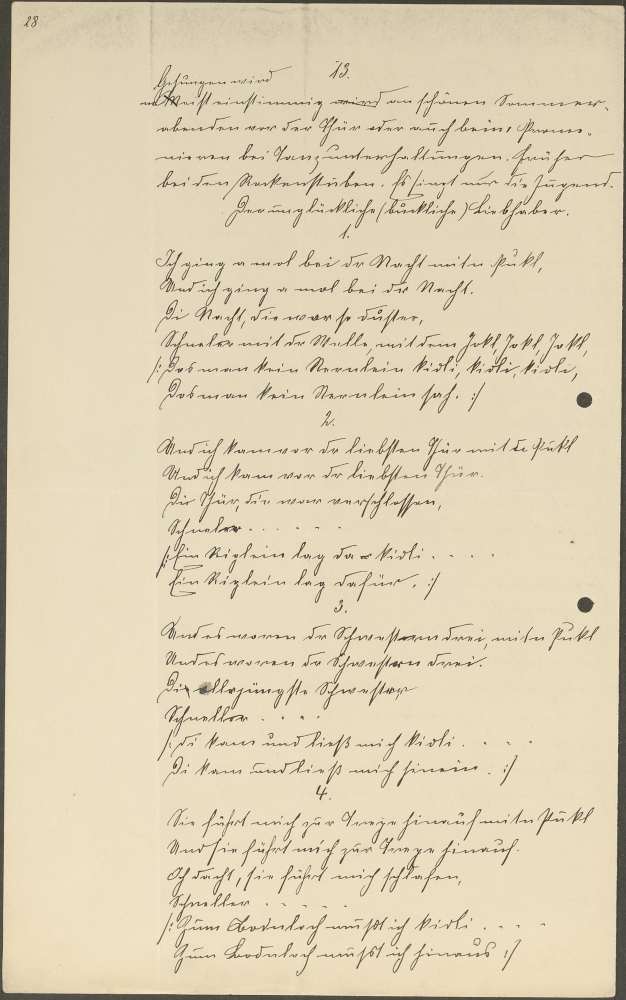 28
13.
Gesungen wird
Meist einstimmig wird an schönen Sommer-
abenden vor der Thür oder auch beim Prome-
nieren bei Tanzunterhaltungen. Früher
bei den Rockenstuben. Es singt nur die Jugend.
Der unglückliche (buckliche) Liebhaber.
1.
Ich ging a mol bei dr Nacht mitn Pukl,
Und ich ging a mol bei dr Nacht.
Di Nacht, die war so duster,
Schneler mit dr Welle, mit dem Jokl, Jokl, Jokl,
/: Das man kein Sternlein kidli, kidli, kidli,
Das man kein Sternlein sah. :/
2.
Und ich kam vor dr liebsten Thür mit de Pukl
Und ich kam vor dr liebsten Thür.
Die Thür, die war verschlossen,
Schneler . . . . . .
/: Ein Riglein lag da kidli . . . .
Ein Riglein lag dafür. :/
3.
Und es waren dr Schwestern drei, mitn Pukl
Und es waren dr Schwestern drei.
Die allerjüngste Schwester
Schneller . . . .
/: Di kam und ließ mich kidli . . . .
Di kam und ließ mich hinein. :/
4.
Sie führt mich zur Trepe hinauf mitn Pukl
Und sie führt mich zur Trepe hinauf.
Ich dacht, sie führt mich schlafen,
Schneller . . . . .
/: Zum Bodnloch mußt ich kidli . . . .
Zum Bodnloch musst ich hinaus :/